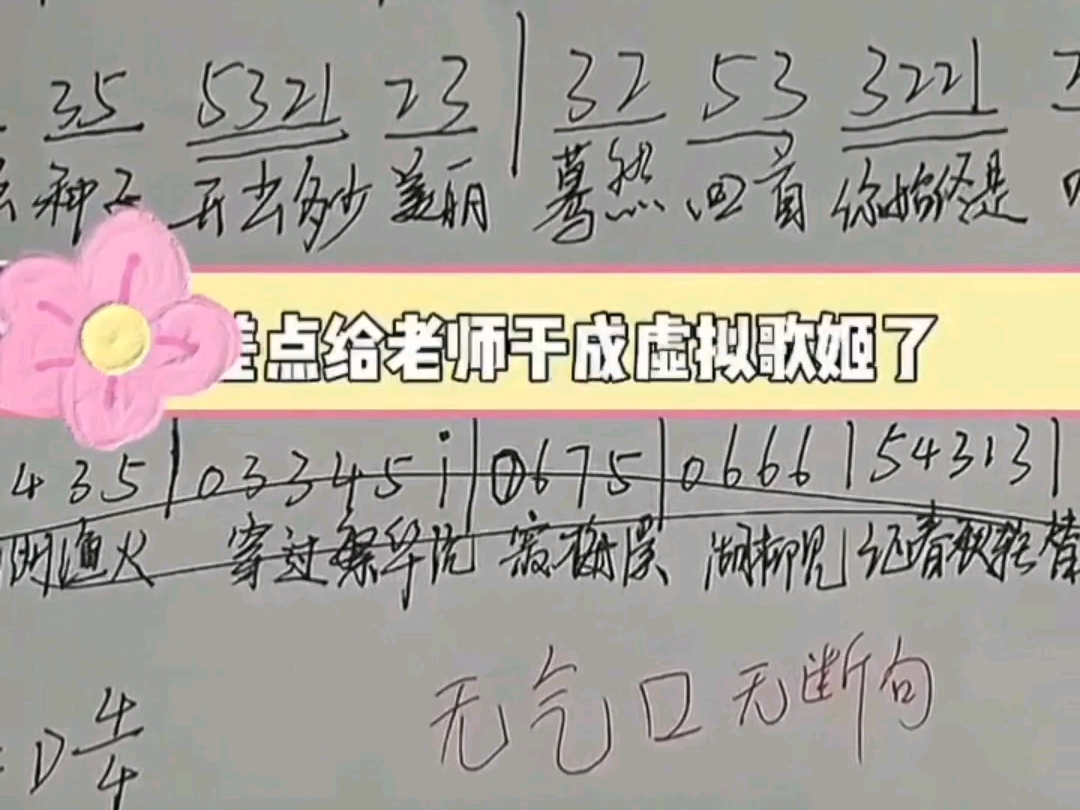 35 5321 23 | 32 53 3221
种子 开出多少美丽 蓦然回首 你始终是
差点给老师干成虚拟歌姬了
435 | 03345i | 0675 | 0666 | 54313 |
渔火 穿过繁华 湖柳见证春秋轮替
无气口无断句
D 4/4